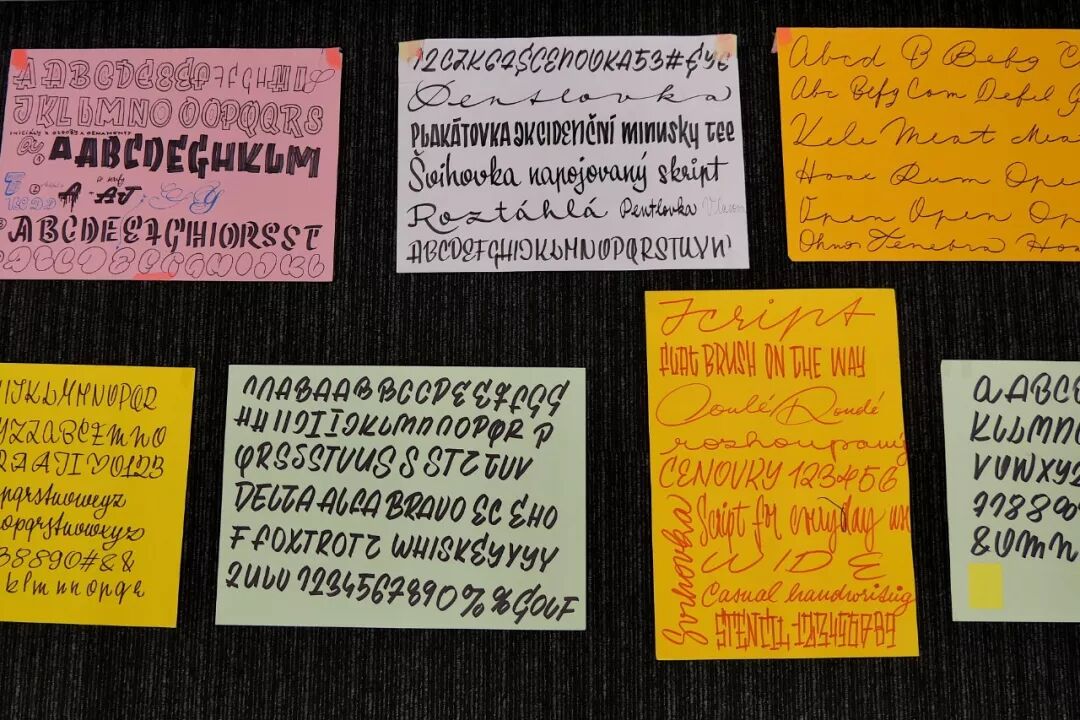 AABCDEEFFGHHI
JKLLMNO OOPQQRS
AABCDEGHKLM
ABCDEEFGHIORSST
12CZK67$CENOVKA53#
Pentlovka
PLAKÁTOVKA AKCIDENČNÍ minusky tee
Švihovka napojovaný skript
Roztáhlá Pentlovka Vlasov
ABCDEFGHIJKLMNOPQRSTUVN
Abcd B Befg C
Abc Befg Com Defel G
Kele Meat Mea
Hoax Rum Ope
Open Open Op
Ohnos Tenebra Hoa
IJKLMMNOPQR
YZZABCEMNO
RAAJIVO123
pqrstuvwxyz
opqrstuvwxyz
38890#&&
klmnnopqr
MABAABBCCDEEFFGG
HHIIJIIJKLMNNOPQR P
QRSSSTUUSSSTZTUV
DELTA ALFA BRAVO EC EHO
F FOXTROTZ WHISKEYYYY
2ULU 1234567890%%GOLF
Script
FLAT BRUSH ON THE WAY
Oculé Rondé
rozhoupaný
CENOVKY 123456
Script for everyday
WIDE
Casual handwriting
STENCIL 123456789
Švihovka
aABCE
KLLMN
VUWXYZ
778890
&UMN